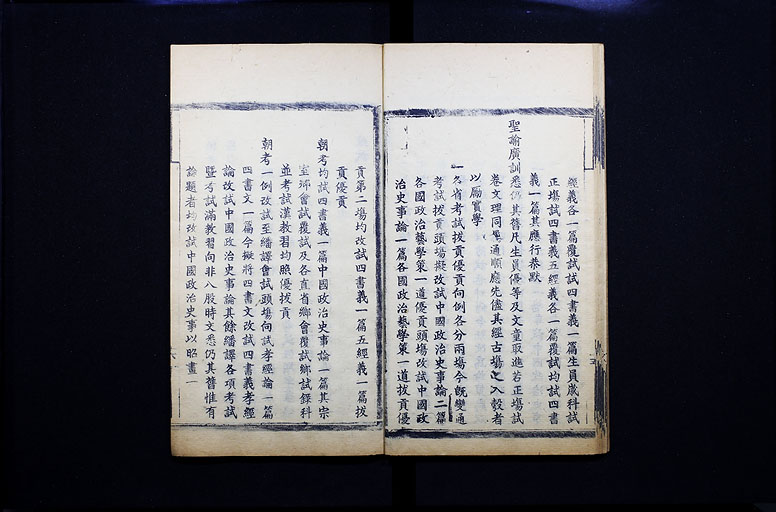 經義各一篇覆試試四書義一篇生員歲科試
正塲試四書義五經義各一篇覆試均試四書
義一篇其應行恭默
聖諭廣訓悉仍其舊凡生員優等及文童取進若正塲試
卷文理同是通順應先儘其經古塲之入彀者
以勵實學
一各省考試拔貢優貢向例各分兩塲今旣變通
考試拔貢頭塲擬改試中國政治史事論二篇
各國政治藝學策一道優貢頭塲改試中國政
治史事論一篇各國政治藝學策一道拔貢優
貢第二塲均改試四書義一篇五經義一篇拔
貢優貢
朝考均試四書義一篇中國政治史事論一篇其宗
室鄉會試覆試及各直省鄉會覆試鄉試錄科
並考試漢教習均照優拔貢
朝考一例改試至繙譯會試頭塲向試孝經論一篇
四書文一篇今擬將四書文改試四書義孝經
論改試中國政治史事論其餘繙譯各項考試
暨考試滿教習向非八股時文悉仍其舊惟有
論題者均改試中國政治史事以昭畫一